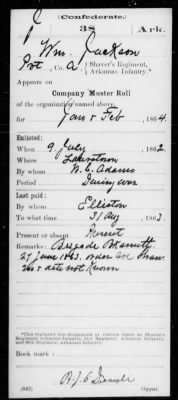 Confederate.
J 38 Ark.
Wm. Jackson
Pvt, Co. A, Shaver's Regiment, Arkansas Infantry.*
Appears on
Company Muster Roll
of the organization named above,
for Jan & Feb, 1864.
Enlisted:
When 9 July, 1862.
Where
By whom W. C. Adams
Period During war
Last paid:
By whom Elliston
To what time 31 Aug, 1863.
Present or absent Present
Remarks: Brigade
27 June 1863. order Col Shaw
& date not Known
*This regiment was designated at various times as Shaver's
Regiment Arkansas Infantry
and 38th Regiment Arkansas Infantry.
Book mark:
(642) Copyist.